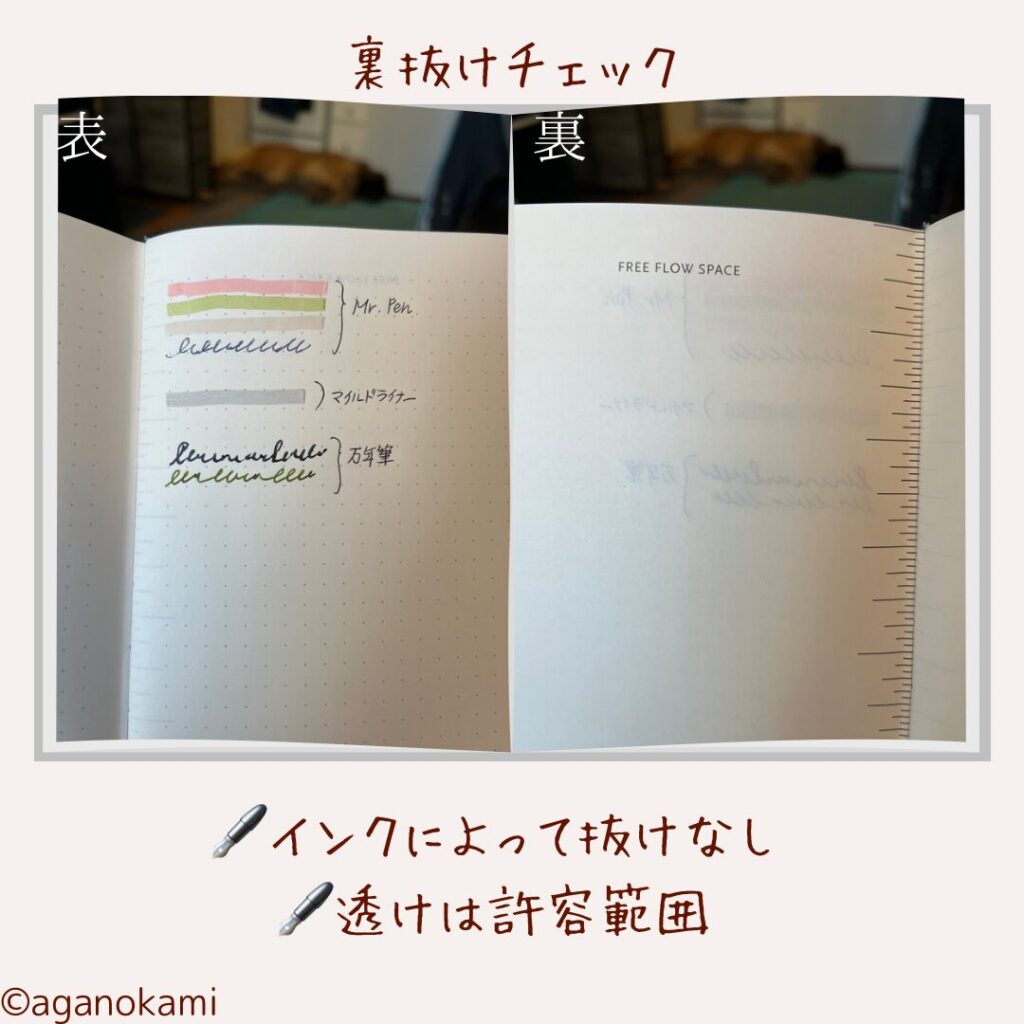 裏抜けチェック
表
裏
FREE FLOW SPACE
Mr. Pen
マイルドライナー
万年筆
インクによって抜けなし
透けは許容範囲
©aganokami